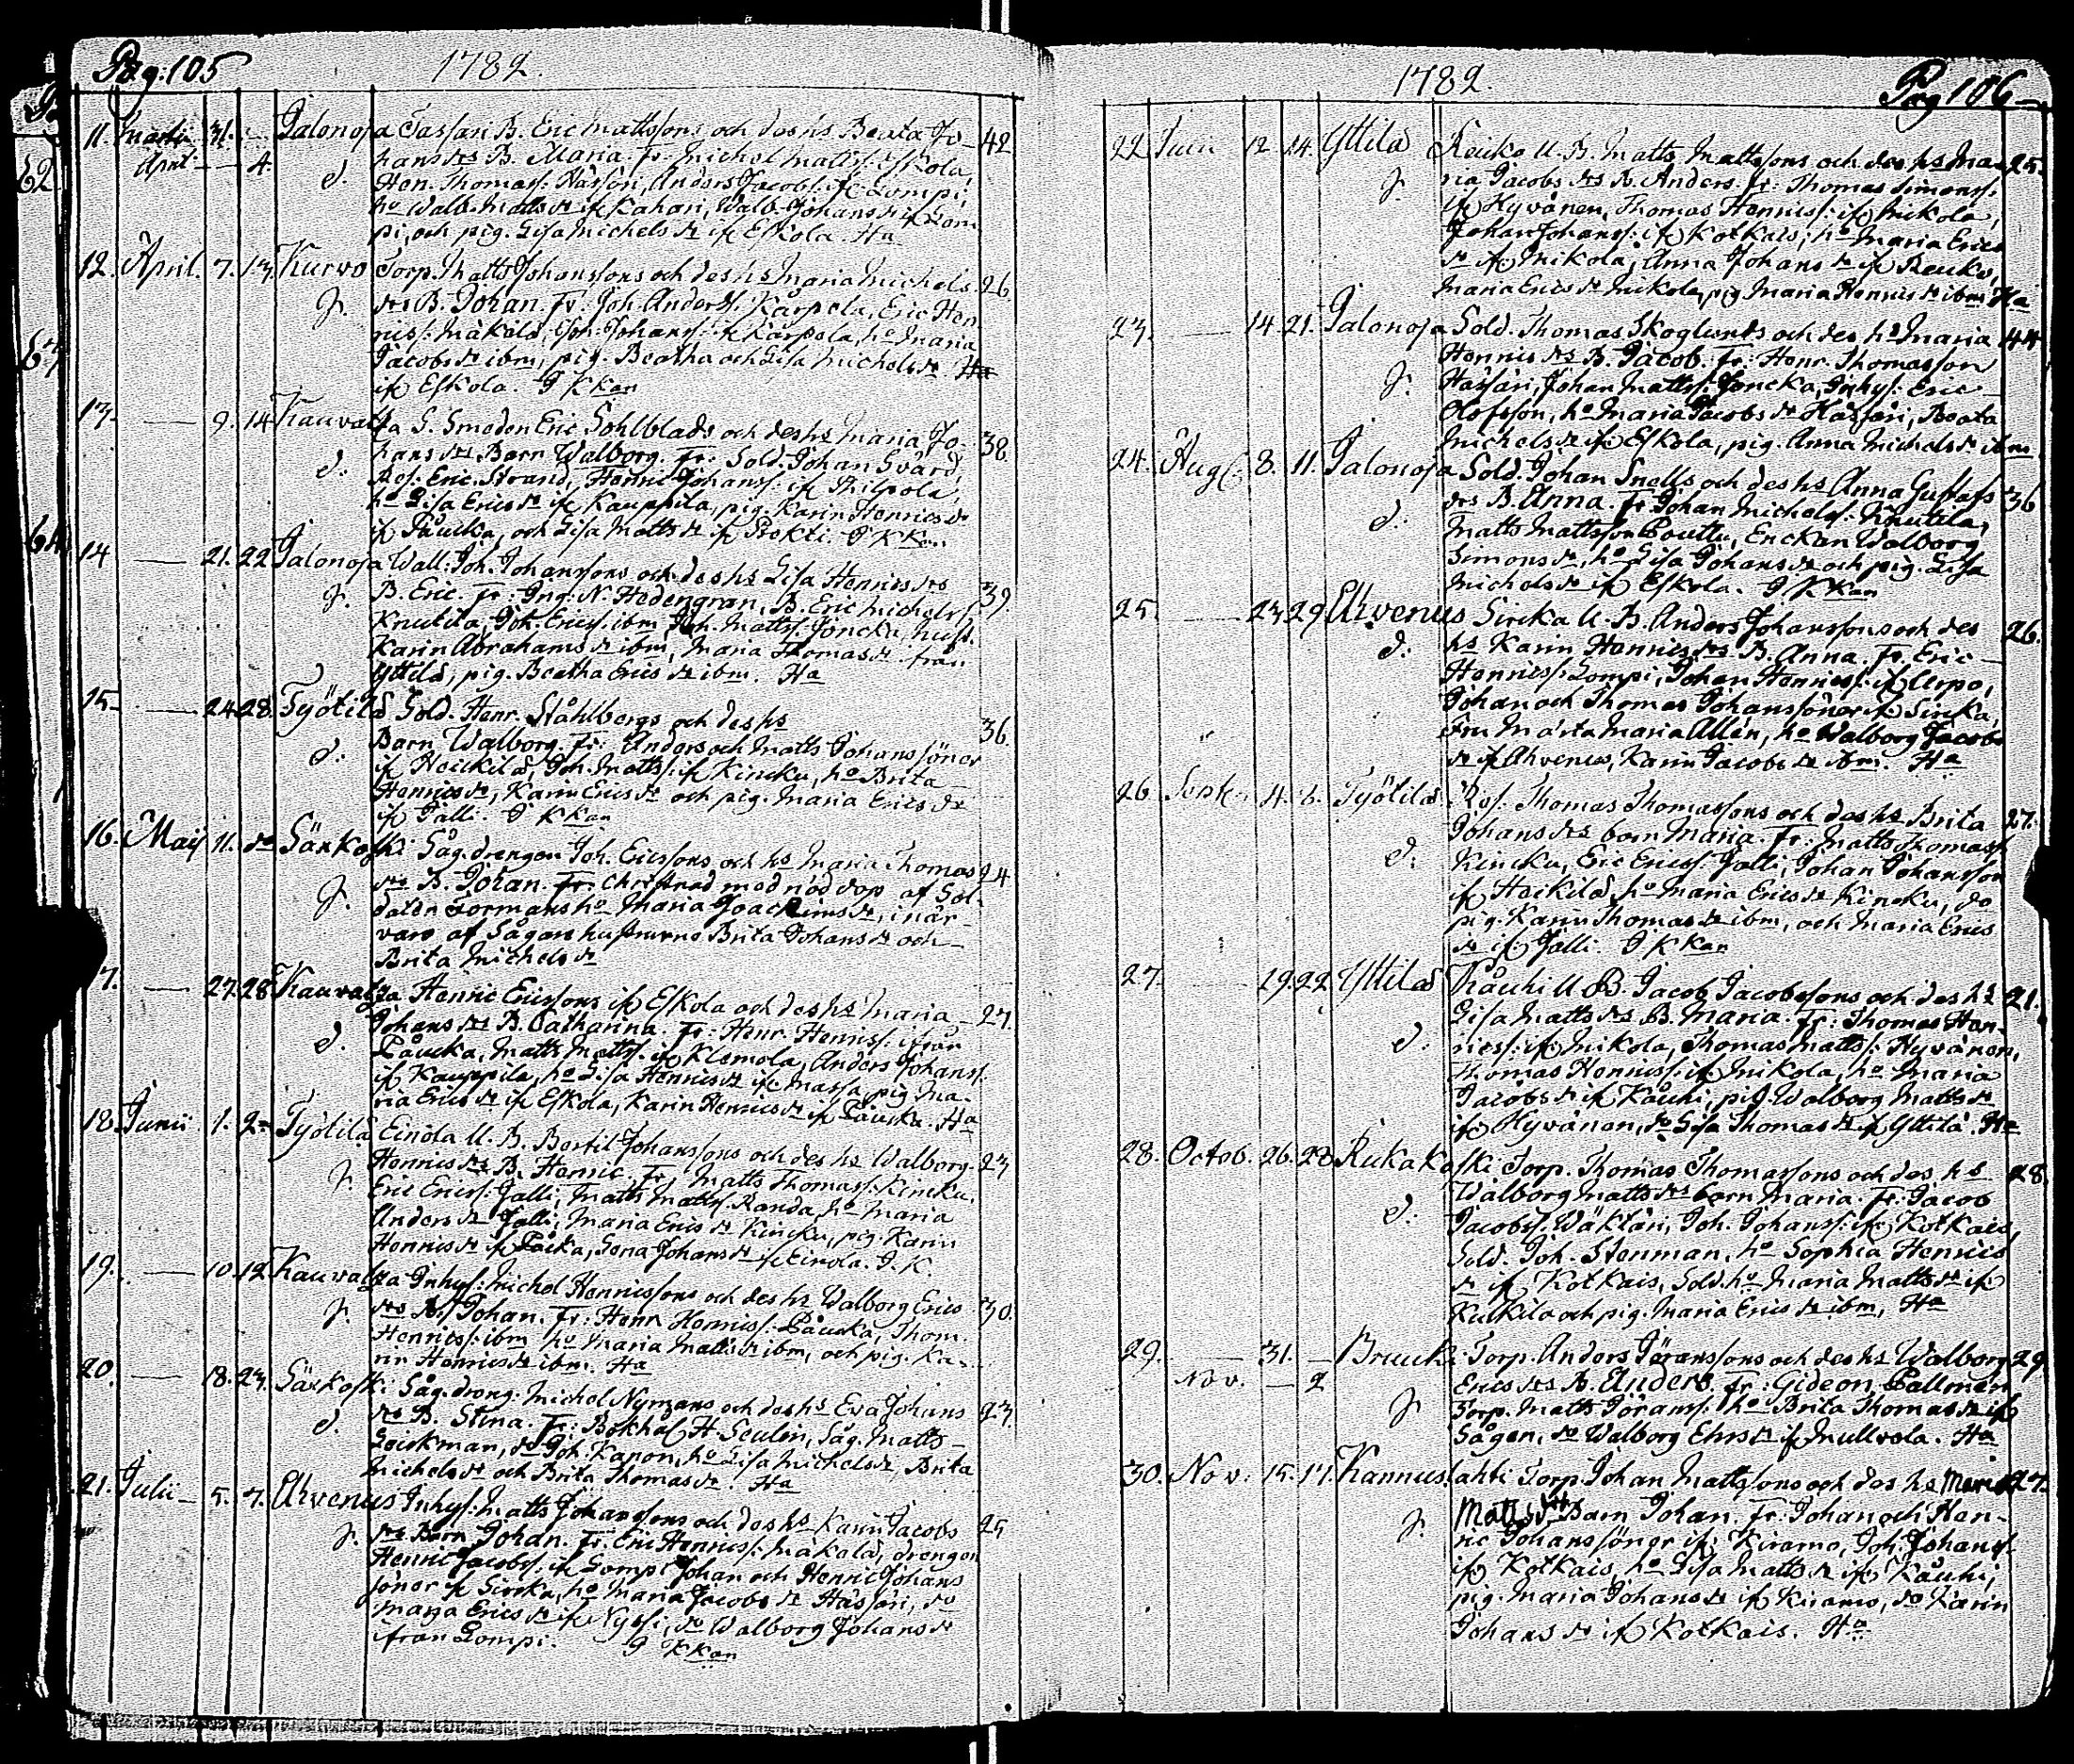 Pag: 105 1782.
11. Martii 31. — Jalonoja Tassari B. Eric Mattssons och des hs Beata Jo- 42
April — 4. hans drs B. Maria. Fr: Michel Matts: Eskola,
d. Hen. Thomas: Hassari, Anders Jacobs: if Lompi,
ho Walb. Matts dr if Kahari, Walb. Johans dr if Lom-
pi, och pig. Lisa Michels dr if Eskola. Ha
12. April. 7. 13. Kurvo Torp. Matts Johanssons och des hs Maria Michels 26.
g. drs B. Johan. Fr: Joh. Anderss: Karpela, Eric Hen-
rics: Mäkälä, Joh: Johanss: if Karpela, ho Maria
Jacobs dr ibm, pig. Beatha och Lisa Michels dr Ha
if Eskola. J K kan
13. — 9. 14 Kauvatsa S. Smeden Eric Sohlblads och des hs Maria Jo- 38.
hans drs Barn Walborg. Fr: Sold. Johan Svärd,
d. Ref: Eric Strand, Henric Johanss: if Philpola,
ho Lisa Erics dr if Kauppila, pig. Karin Henrics dr
if Påucka, och Lisa Matts dr if Prokti. J K kan
14 — 21. 22 Jalonoja Wall: Joh. Johanssons och des hs Lisa Henrics drs 39.
g. B. Eric. Fr: Ing: N. Hedengran, B. Eric Michelss:
Knutila, Joh. Erics: ibm, Joh. Matts: Joncka, hust.
Karin Abrahams dr ibm, Maria Thomas dr från
Yttilä, pig. Beatha Erics dr ibm. Ha
15. — 24. 28. Työtilä Sold. Henr. Ståhlbergs och des hs 36.
Barn Walborg. Fr: Anders och Matts Johans söner
d. if Heickilä, Joh. Matts: if Kincku, ho Brita
Henrics dr, Karin Erics dr och pig. Maria Erics dr
if Jalli. J K kan
16. Maij 11. do Säxkoski Såg. drengen Joh. Ericssons och hs Maria Thomas 24
drs B. Johan. Fr: Christnad med nöd dop af Sol-
g. daten Formans ho Maria Joachims dr, i när-
varo af Sågans hustrurna Brita Johans dr och
Brita Michels dr
17. — 27. 28 Kauvatsa Henric Ericssons if Eskola och des hs Maria 27.
Johans drs B. Catharina. Fr: Henr. Henrics: ifrån
d. Påucka, Matts Matts: if Klemola, Anders Johanss:
if Kauppila, ho Lisa Henrics dr if Massa, pig. Ma-
ria Erics dr if Eskola, Karin Henrics dr if Påucka. Ha
18. Junii 1. 2. Työtilä Einola U. B. Bertil Johanssons och des hs Walborg 23
Henrics drs B. Henric. Fr: Matts Thomass: Kincku.
g. Eric Erics: Jalli, Matts Matts: Randa, ho Maria
Anders dr Jalli, Maria Erics dr Kincku, pig. Karin
Henrics dr if Påcka, Lena Johans dr if Einola. J. K.
19. — 10. 12 Kauvatsa Inhys: Michel Henricssons och des hs Walborg Erics 30.
g. drs B. Johan. Fr: Henr. Henrics: Påucka, Thom.
Henrics: ibm, ho Maria Matts dr ibm, och pig. Ka-
rin Henrics dr ibm. Ha
20. — 18. 23. Säxkoski Såg. dreng: Michel Nymans och des hs Eva Johans 23
d. drs B. Stina. Fr: Bokhal. H. Seulen, Såg. Matts
Leickman, do Joh. Kanon, ho Lisa Michels dr, Brita
Michels dr och Brita Thomas dr. Ha
21. Julii — 5. 7. Ahvenus Inhys: Matts Johanssons och des hs Karin Jacobs 25
g. drs Barn Johan. Fr: Eric Henrics: Makala, drengen
Henric Jacobs: if Lompi Johan och Henric Johans
söner if Sirrka, ho Maria Jacobs dr Hassari, do
Marja Erics dr if Nyssi, do Walborg Johans dr
ifrån Lompi. J K kan
1782. Pag 106
22 Julii 12 14. Yttilä Reuko U. B. Matts Mattssons och des hs Ma- 25.
g. ria Jacobs drs B. Anders. Fr: Thomas Simonss:
if Hyvänen, Thomas Henrics: if Mikola,
Johan Johanss: if Kotkais; ho Maria Erics
dr if Mikola, Anna Johans dr if Reuko,
Maria Erics dr Mikola, pig Maria Henrics dr ibm Ha
23. — 14. 21. Jalonoja Sold. Thomas Skoglunds och des hs Maria 44
Henrics drs B. Jacob. Fr: Henr. Thomasson
g. Hässäri, Johan Matts: Joncka, Inhys: Eric
Olofsson, ho Maria Jacobs dr Hassari, Beata
Michels dr if Eskola, pig. Anna Michels dr ibm
24. Aug: 8. 11. Jalonoja Sold. Johan Snells och des hs Anna Gustafs 36
drs B. Anna. Fr: Johan Michelss: Knutila,
d. Matts Mattsson Pouttu, Enckan Walborg
Simons dr, ho Lisa Johans dr och pig. Lisa
Michels dr if Eskola. J K kan
25. — 23. 29 Ahvenus Sircka U. B. Anders Johanssons och des 26.
d. hs Karin Henrics drs B. Anna. Fr. Eric
Henrics: Lompi, Johan Henrics: if Urpo,
Johan och Thomas Johanssöner if Sircka,
Fru Märta Maria Allén, ho Walborg Jacobs
dr if Ahvenus, Karin Jacobs dr ibm. Ha
26 Sept. 4. 8. Työtilä Ref: Thomas Thomassons och des hs Brita 27.
Johans drs barn Maria. Fr: Matts Thomass:
d. Kincku, Eric Ericss: Jalli, Johan Johansson
if Heickilä ho Maria Erics dr Kincku, do
pig. Karin Thomas dr ibm, och Maria Erics
dr if Jalli. J K kan
27. — 19. 22 Yttilä Kåuhi U B. Jacob Jacobssons och des hs 21.
Lisa Matts drs B. Maria. Fr: Thomas Hen-
d. rics: if Mikola, Thomas Matts: Hyvänen,
Thomas Henrics: if Mikola, ho Maria
Jacobs dr if Kåuhi, pig. Walborg Matts dr
if Hyvänen, do Lisa Thomas dr if Yttilä. Ha
28. Octob. 26. 28 Kukakoski Torp. Thomas Thomassons och des hs 28.
Walborg Matts drs barn Maria. Fr: Jacob
d. Jacobs: Wäktäri, Joh. Johanss: if Kotkais,
Sold. Joh. Stenman, ho Sophia Henrics
dr if Kotkais, Sold. ho Maria Matts dr if
Kukila och pig. Maria Erics dr ibm, Ha
29. — 31. — Bruuki Torp. Anders Göranssons och des hs Walborg 29
Nov. — 2 Erics drs B. Anders. Fr: Gideon Pallmen
g. Torp. Matts Görans: ho Brita Thomas dr if
Sågen, do Walborg Ehrs dr if Mullvola. Ha
30. Nov. 15. 17. Kannuslahti Torp. Johan Mattssons och des hs Maria 27.
g. Matts dtr Barn Johan. Fr: Johan och Hen-
ric Johanssöner if: Kiramo, Joh: Johanss:
if Kotkais, ho Lisa Matts dr if Kåuhi,
pig. Maria Johans dr if Kiramo, do Karin
Johans dr if Kotkais. Ha